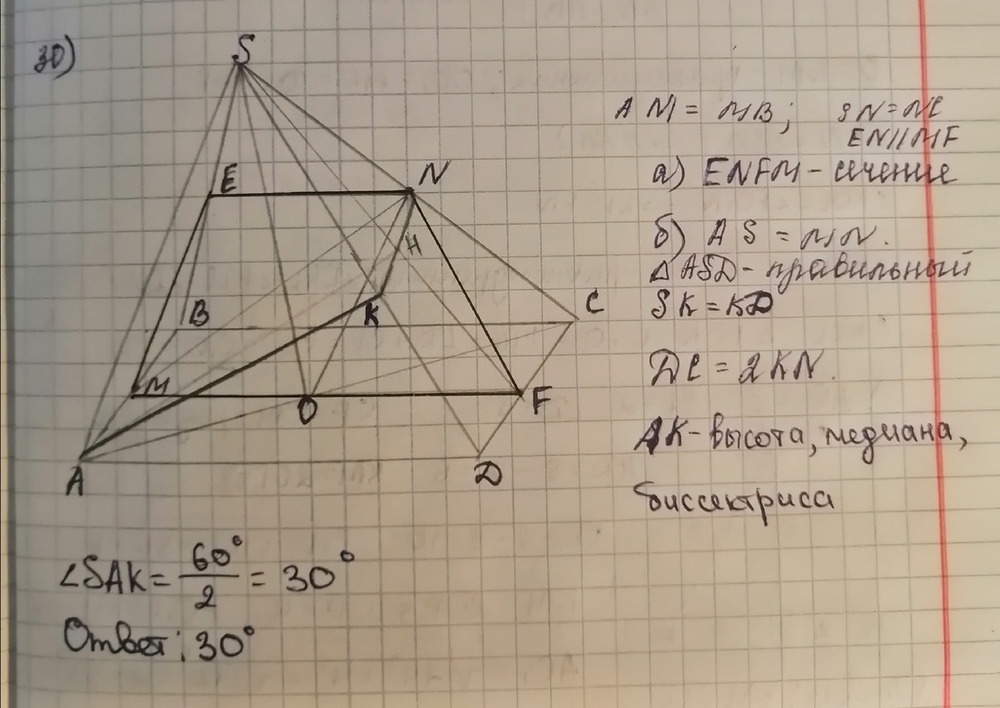 30)
S
E
N
H
B
K
C
M
O
F
A
D
AM = MB; SN = NC
EN || MF
а) ENFM - сечение
б) AS = MN.
△ASD - правильный
SK = KD
DC = 2KN.
AK - высота, медиана,
биссектриса
∠SAK = 60°/2 = 30°
Ответ: 30°